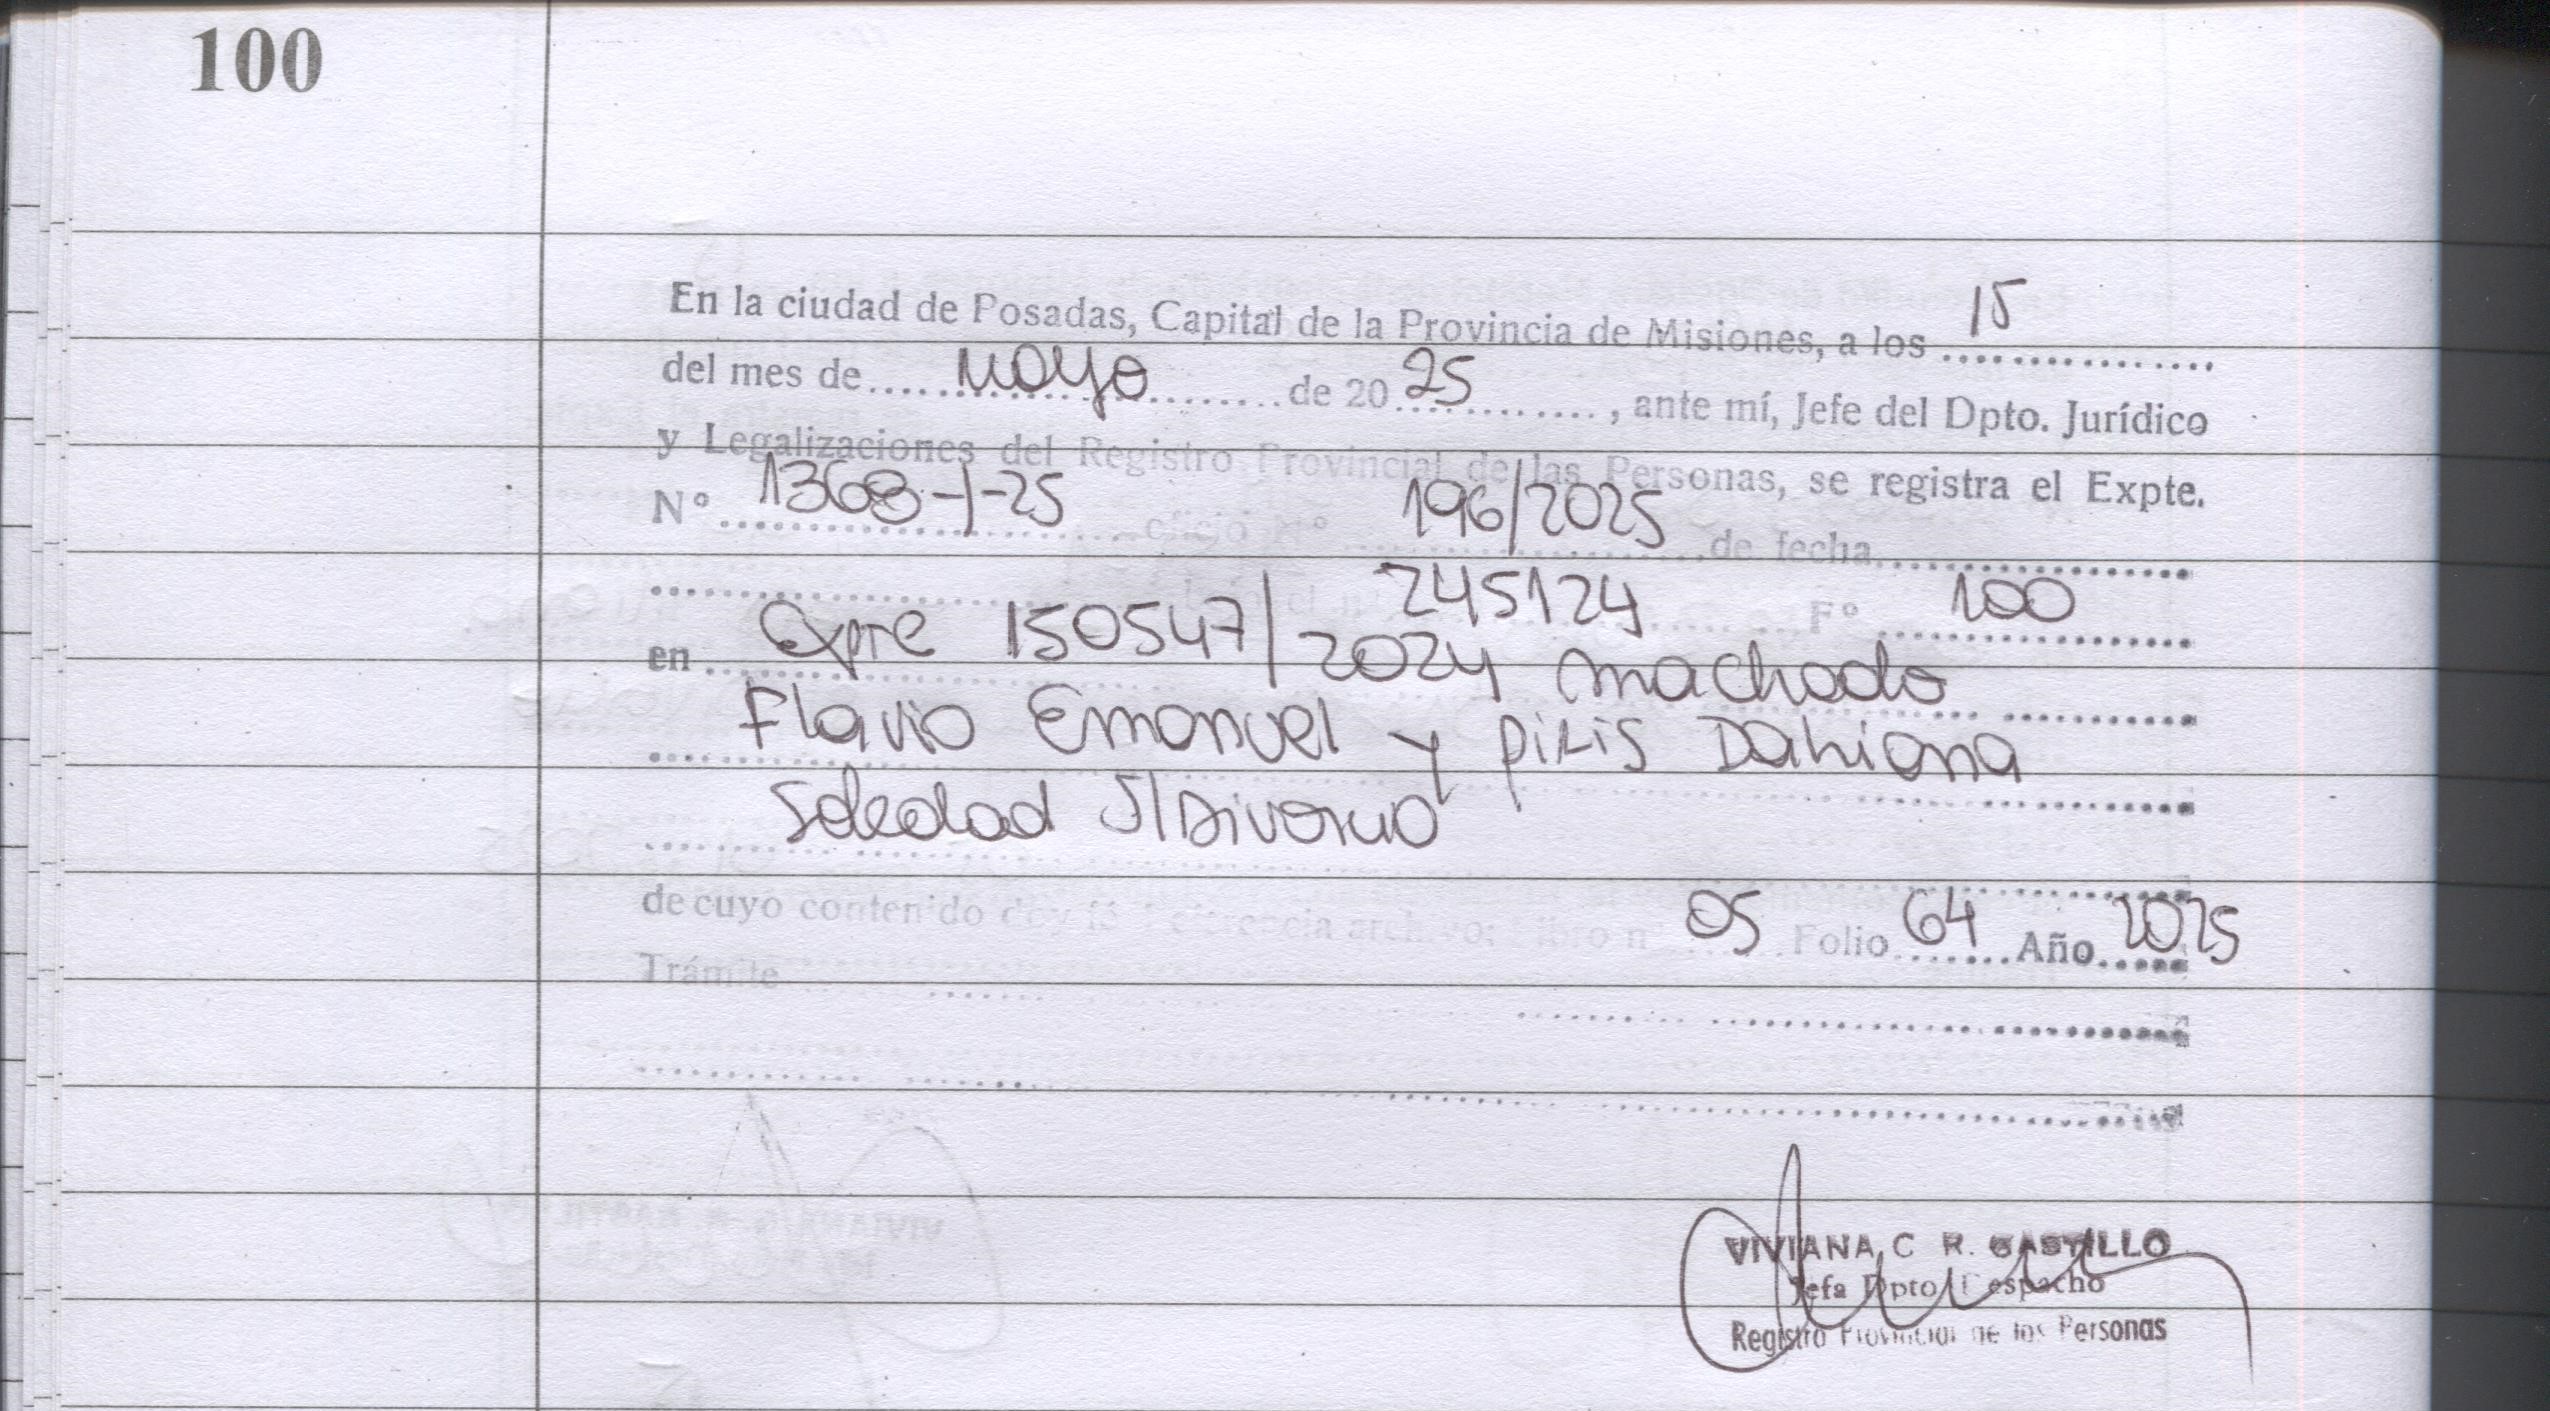 100
En la ciudad de Posadas, Capital de la Provincia de Misiones, a los 15
del mes de mayo de 2025, ante mí, Jefe del Dpto. Jurídico
y Legalizaciones del Registro Provincial de las Personas, se registra el Expte.
Nº 1368-1-25 oficio Nº 196/2025 de fecha
245124 Fº 100
en Expte 150547/2024 Machado
Flavio Emanuel y Piris Dahiana
Soledad S/Divorcio
de cuyo contenido doy fé referencia archivo: libro nº 05 Folio 64 Año 2025
Trámite
VIVIANA C R. CASTILLO
Jefa Dpto Despacho
Registro Provincial de los Personas